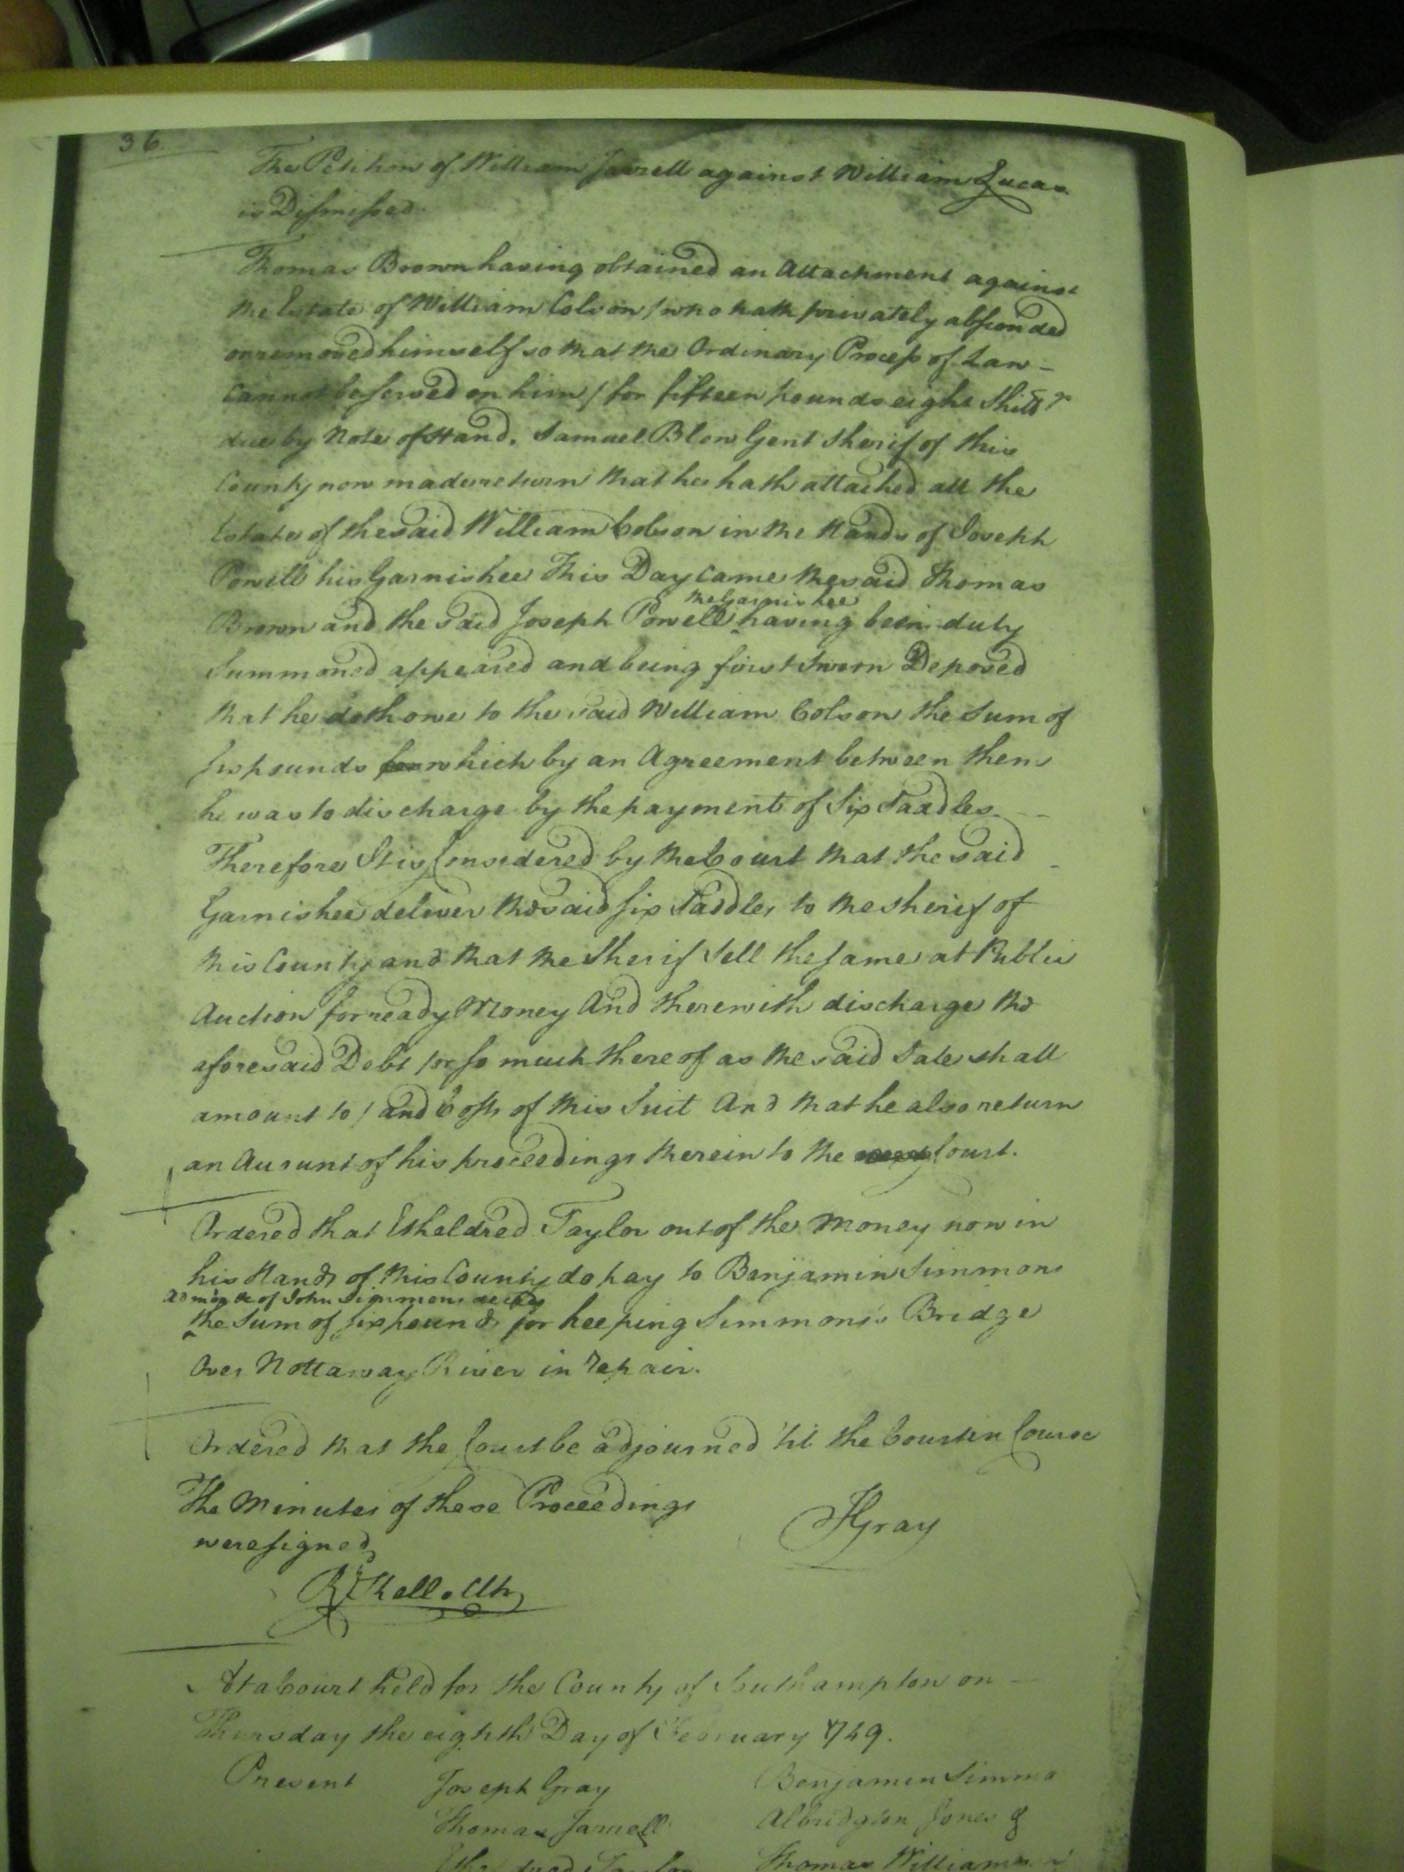 36
The Petition of William Jarrell against William Lucas
is Dismissed
Thomas Brown having obtained an Attachment against
the Estate of William Colson (who hath privately absconded
or removed himself so that the Ordinary Process of Law –
cannot be served on him) for fifteen pounds eight Shills
due by Note of Hand. Samuel Blow Gent Sherif of this
County now made return that he hath attached all the
Estate of the said William Colson in the Hands of Joseph
Powell his Garnishee This Day came the said Thomas
the Garnishee
Brown and the said Joseph Powell ^ having been duly
Summoned appeared and being first Sworn Deposed
that he doth owe to the said William Colson the Sum of
six pounds for which by an Agreement between them
he was to discharge by the payment of Six Saddles. –
Therefore It is Considered by the Court that the said –
Garnishee deliver the said six Saddles to the Sherif of
this County and that the Sherif Sell the same at Public
Auction for ready Money And therewith discharge the
aforesaid Debt (or so much thereof as the said Sale shall
amount to) and Costs of this Suit And that he also return
an Account of his proceedings therein to the next Court.
Ordered that Etheldred Taylor out of the Money now in
his Hands of this County do pay to Benjamin Simmons
of John Simmons deced
^ the Sum of six pounds for keeping Simmons's Bridge
Over Nottaway River in repair.
Ordered that the Court be adjourned 'til the Court in Course
The Minutes of these Proceedings
were signed
JGray
Rd Kello Clk
At a Court held for the County of Southampton on –
Thursday the eighth Day of February 1749.
Present Joseph Gray Benjamin Simmo
Thomas Jarrell Albridgton Jones &
Thomas Williamson